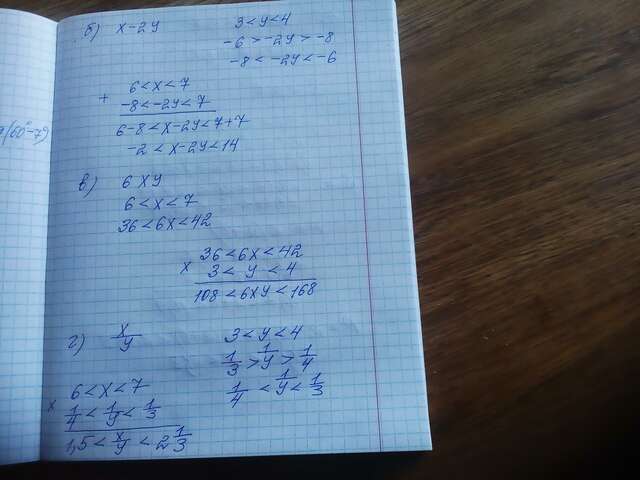 б) x-2y 3<y<4
-6>-2y>-8
-8<-2y<-6
6<x<7
+
-8<-2y<7
6-8<x-2y<7+7
-2<x-2y<14
в) 6xy
6<x<7
36<6x<42
36<6x<42
x
3<y<4
108<6xy<168
г) x/y 3<y<4
1/3>1/y>1/4
1/4<1/y<1/3
6<x<7
x
1/4<1/y<1/3
1,5<x/y<2 1/3